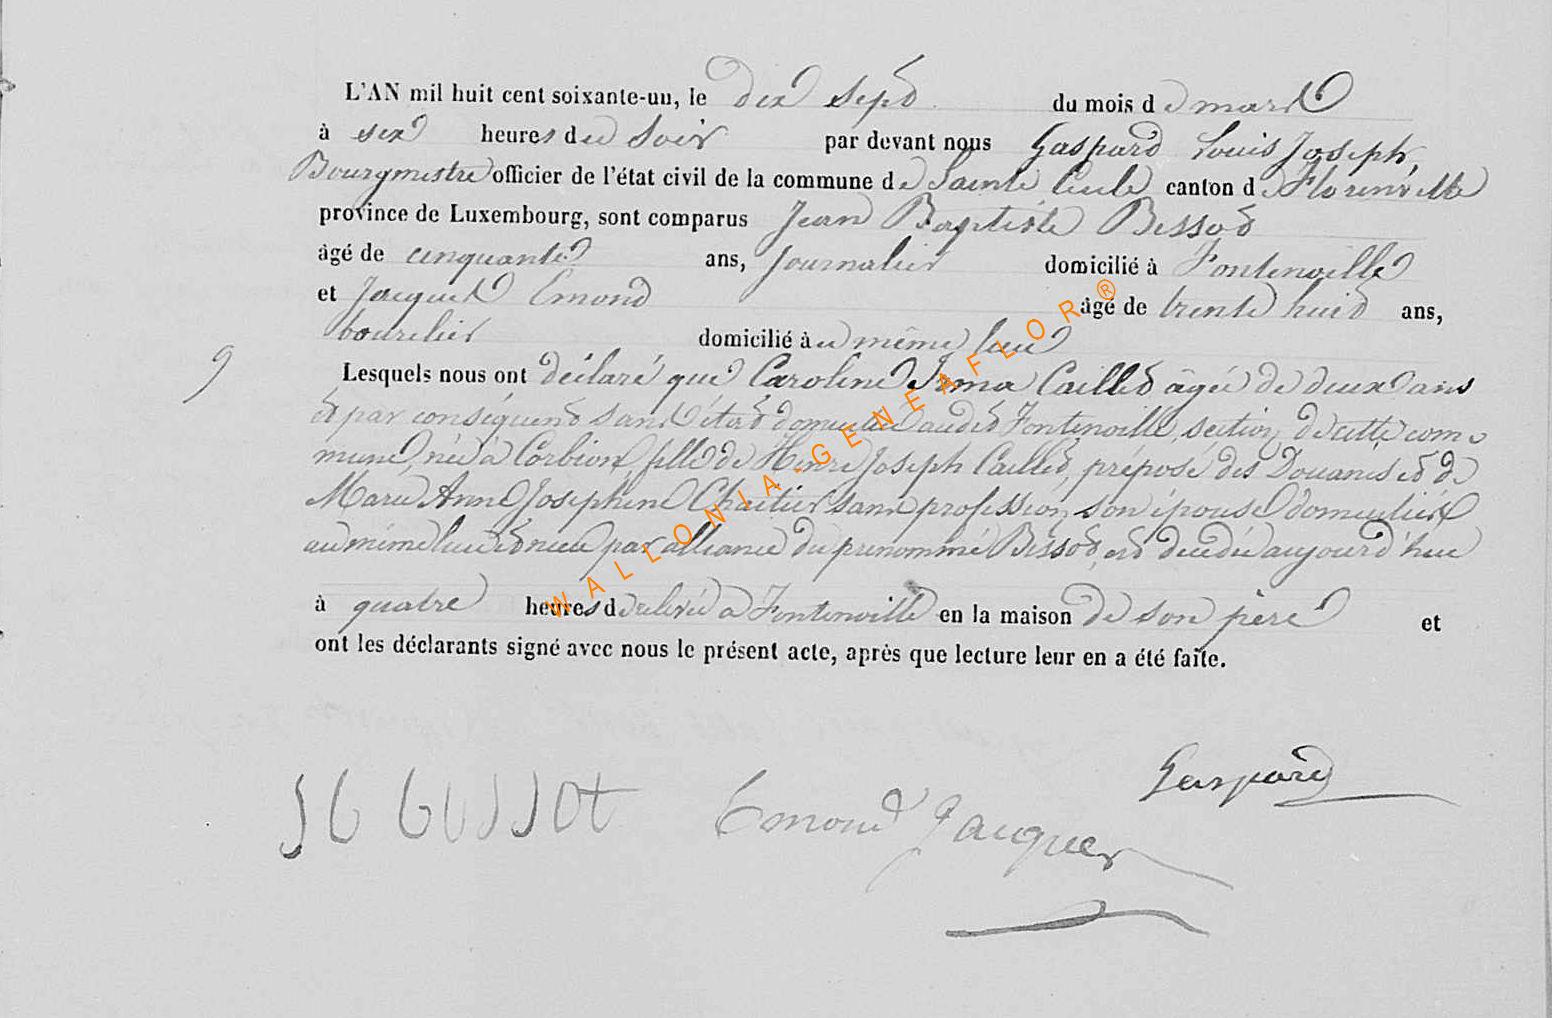 L'AN mil huit cent soixante-un, le dix sept du mois de mars
à six heures du soir par devant nous Gaspard Louis Joseph,
Bourgmestre officier de l'état civil de la commune de Sainte Cecile canton de Florenville
province de Luxembourg, sont comparus Jean Baptiste Bissot
âgé de cinquante ans, Journalier domicilié à Fontenoille
et Jacques Emond âgé de trente huit ans,
bourelier domicilié au même lieu
Lesquels nous ont déclaré que Caroline Irma Caillet âgée de deux ans
9
et par conséquent sans état domiciliée audit Fontenoille, section de cette com-
mune, née à Corbion fille de Henri Joseph Caillet, préposé des Douanes et de
Marie Anne Josephine Chartier sans profession, son épouse domiciliés
au même lieu et niece par alliance du prénommé Bissot, est décédée aujourd'hui
à quatre heures de relevée à Fontenoille en la maison de son père et
ont les déclarants signé avec nous le présent acte, après que lecture leur en a été faite.
Gaspard
Emond Jacques
WALLONIA-GENEAFLOR®